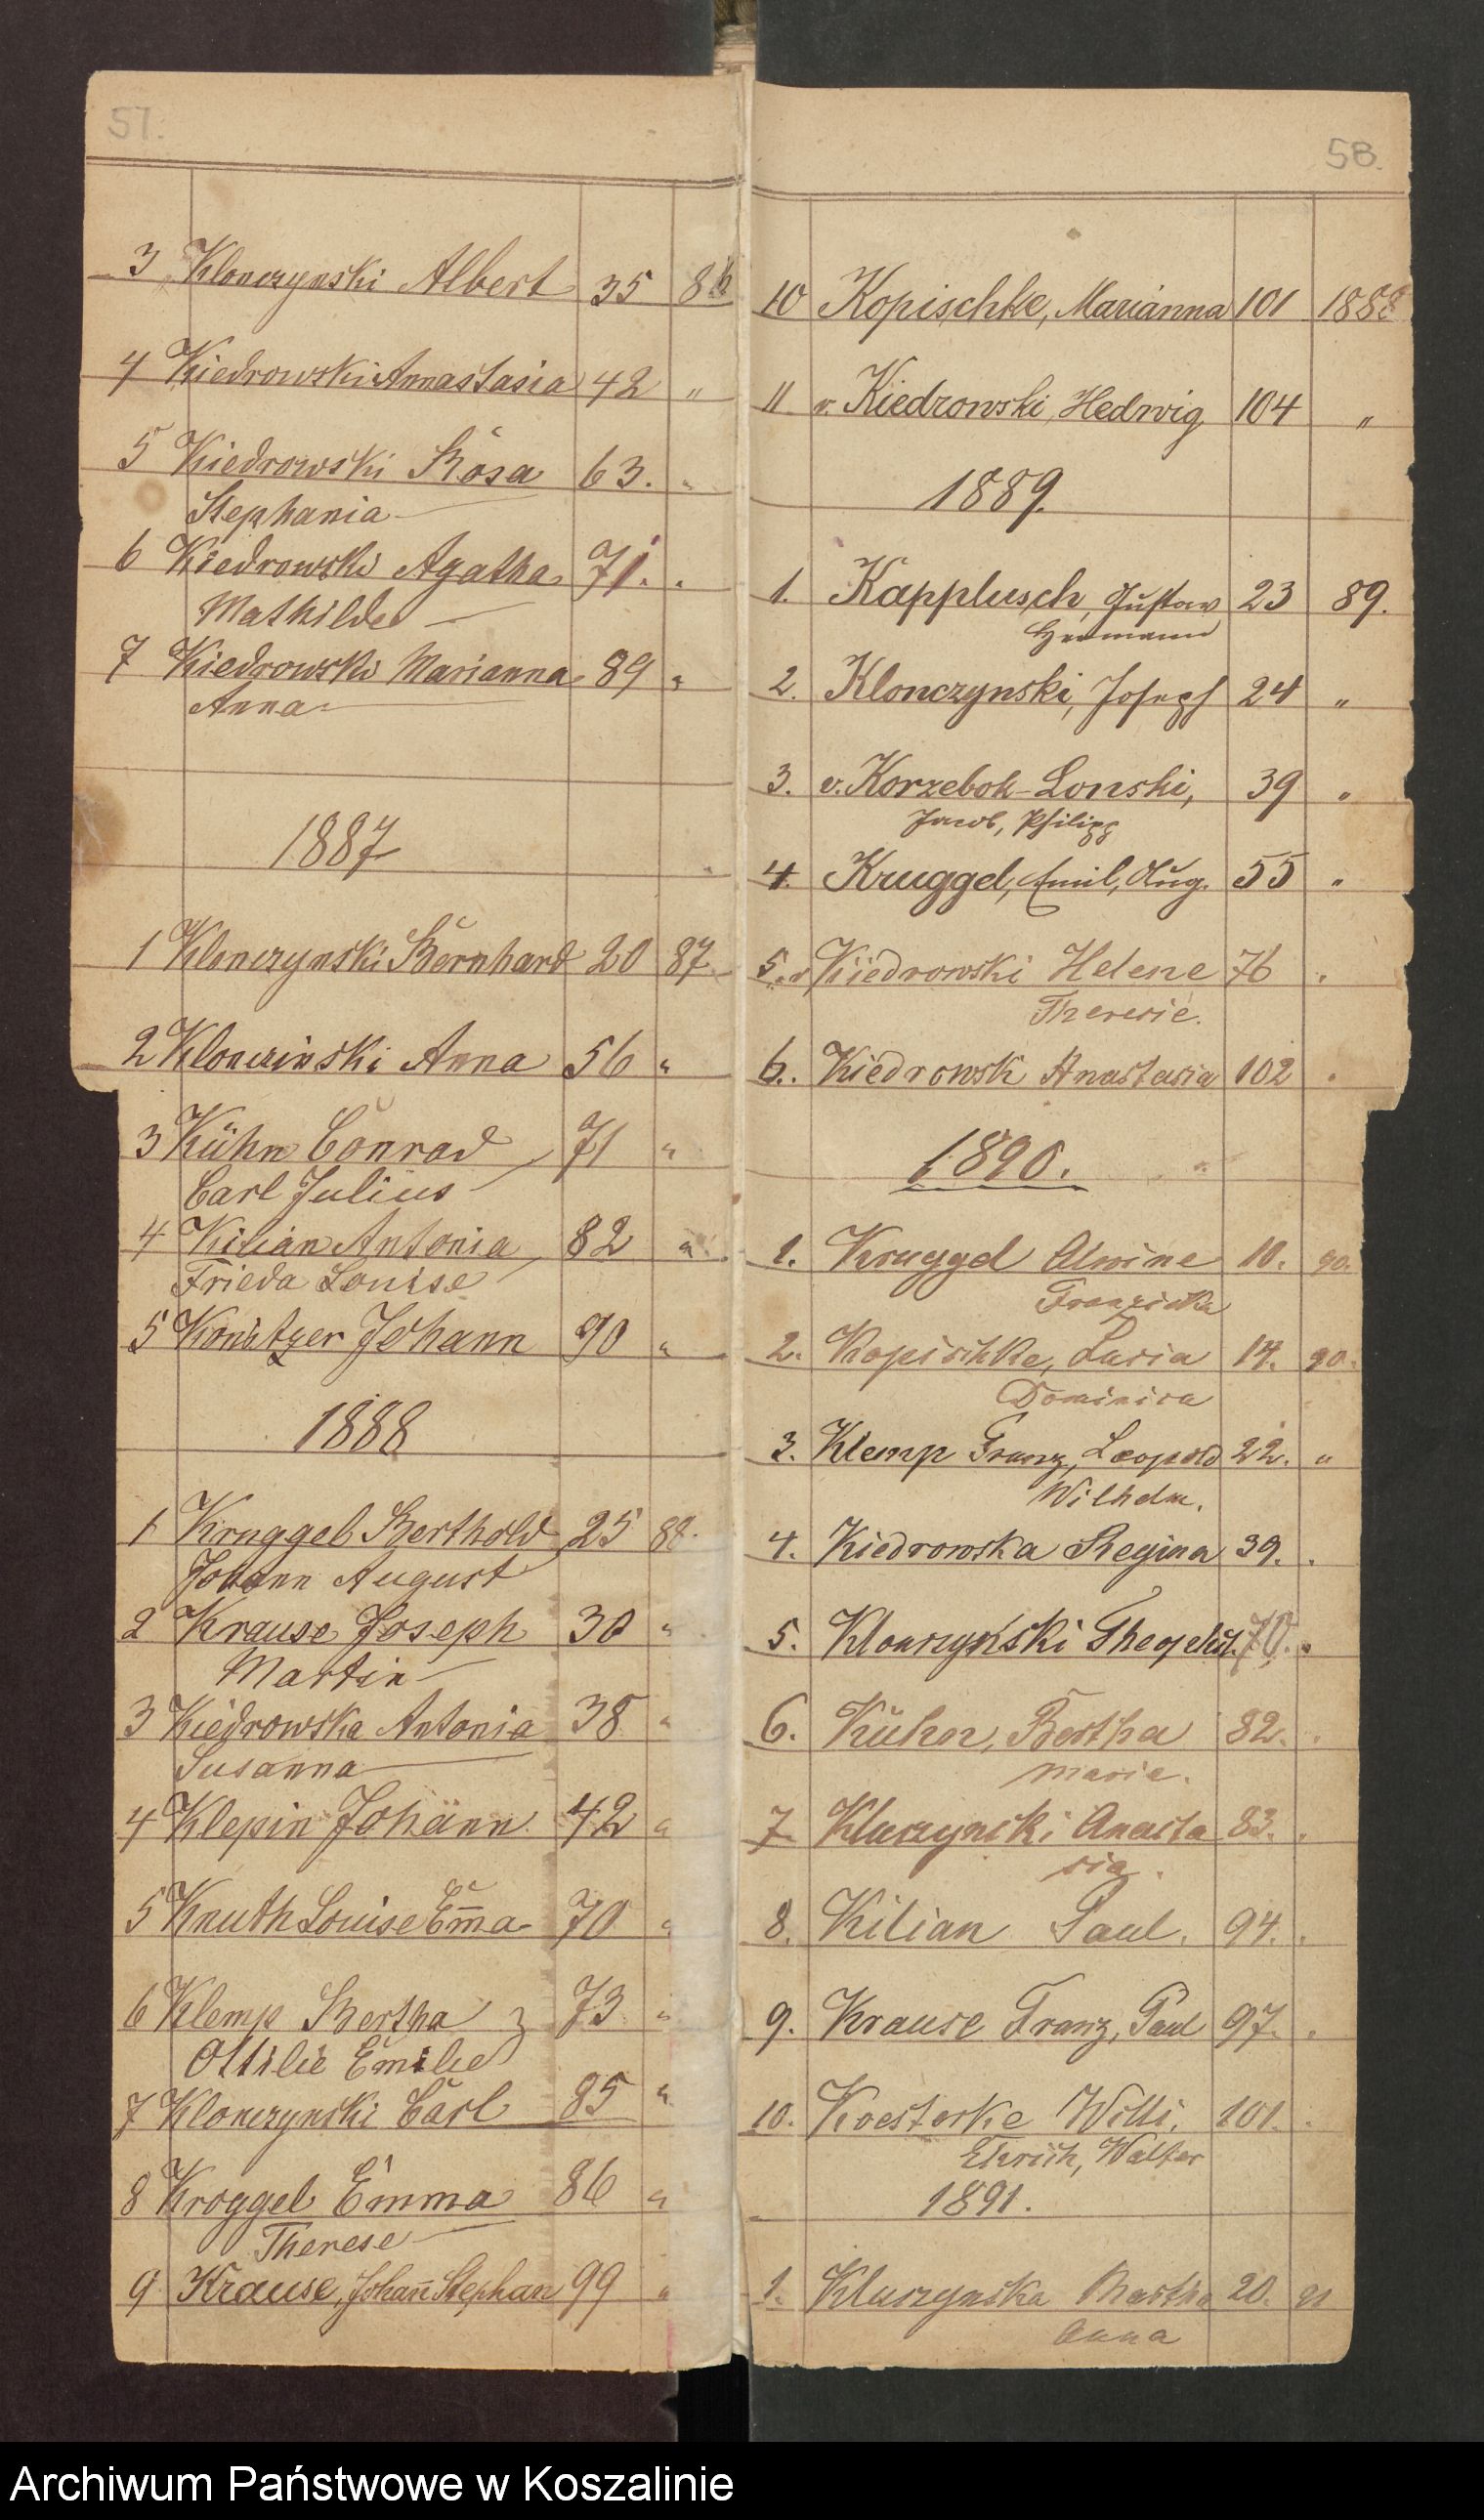 57.
3 Klonczynski Albert 35 86
4 Kiedrowski Annastasia 42 "
5 Kiedrowski Rosa 63. "
Stephania
6 Kiedrowski Agatha 71. "
Mathilde
7 Kiedrowski Marianna 89 "
Anna
1887
1 Klonczynski Bernhard 20 87
2 Klonczinski Anna 56 "
3 Kühn Conrad 71 "
Carl Julius
4 Kilian Antonia 82 "
Frieda Louise
5 Konitzer Johann 90 "
1888
1 Kruggel Berthold 25 88.
Johann August
2 Krause Joseph 30 "
Martin
3 Kiedrowska Antonia 38 "
Susanna
4 Klepin Johann 42 "
5 Knuth Louise Em̄a 70 "
6 Klemp Bertha 73 "
Ottilie Emilie
7 Klonczynski Carl 85 "
8 Kroggel Emma 86 "
Therese
9 Krause, Johan̄ Stephan 99 "
58.
10 Kopischke, Marianna 101 1888
11 v. Kiedrowski, Hedwig 104 "
1889.
1. Kapplusch, Gustav 23 89.
Hermann
2. Klonczynski, Joseph 24 "
3. v. Korzebok-Lonski, 39 "
Jacob, Philipp
4. Kruggel, Emil, Aug. 55 "
5. v Kiedrowski Helene 76 "
Theresie.
6. Kiedrowsk Anastasia 102 "
1890.
1. Kruggel Alwine 10. 90.
Franziska
2. Kopischke, Lucia 14. 90.
Dominica
3. Klemp Franz, Leopold 22. "
Wilhelm.
4. Kiedrowska Regina 39. "
5. Klonczynski 70. "
6. Kühn, Bertha 82. "
Maria.
7. Kluczynski Anasta 83. "
sia.
8. Kilian Paul. 94. "
9. Krause Franz, Paul 97. "
10. Koesterke Willi, 101. "
Ehrich, Walter
1891.
1. Kluczynska Martha 20. 91
Anna
Archiwum Państwowe w Koszalinie